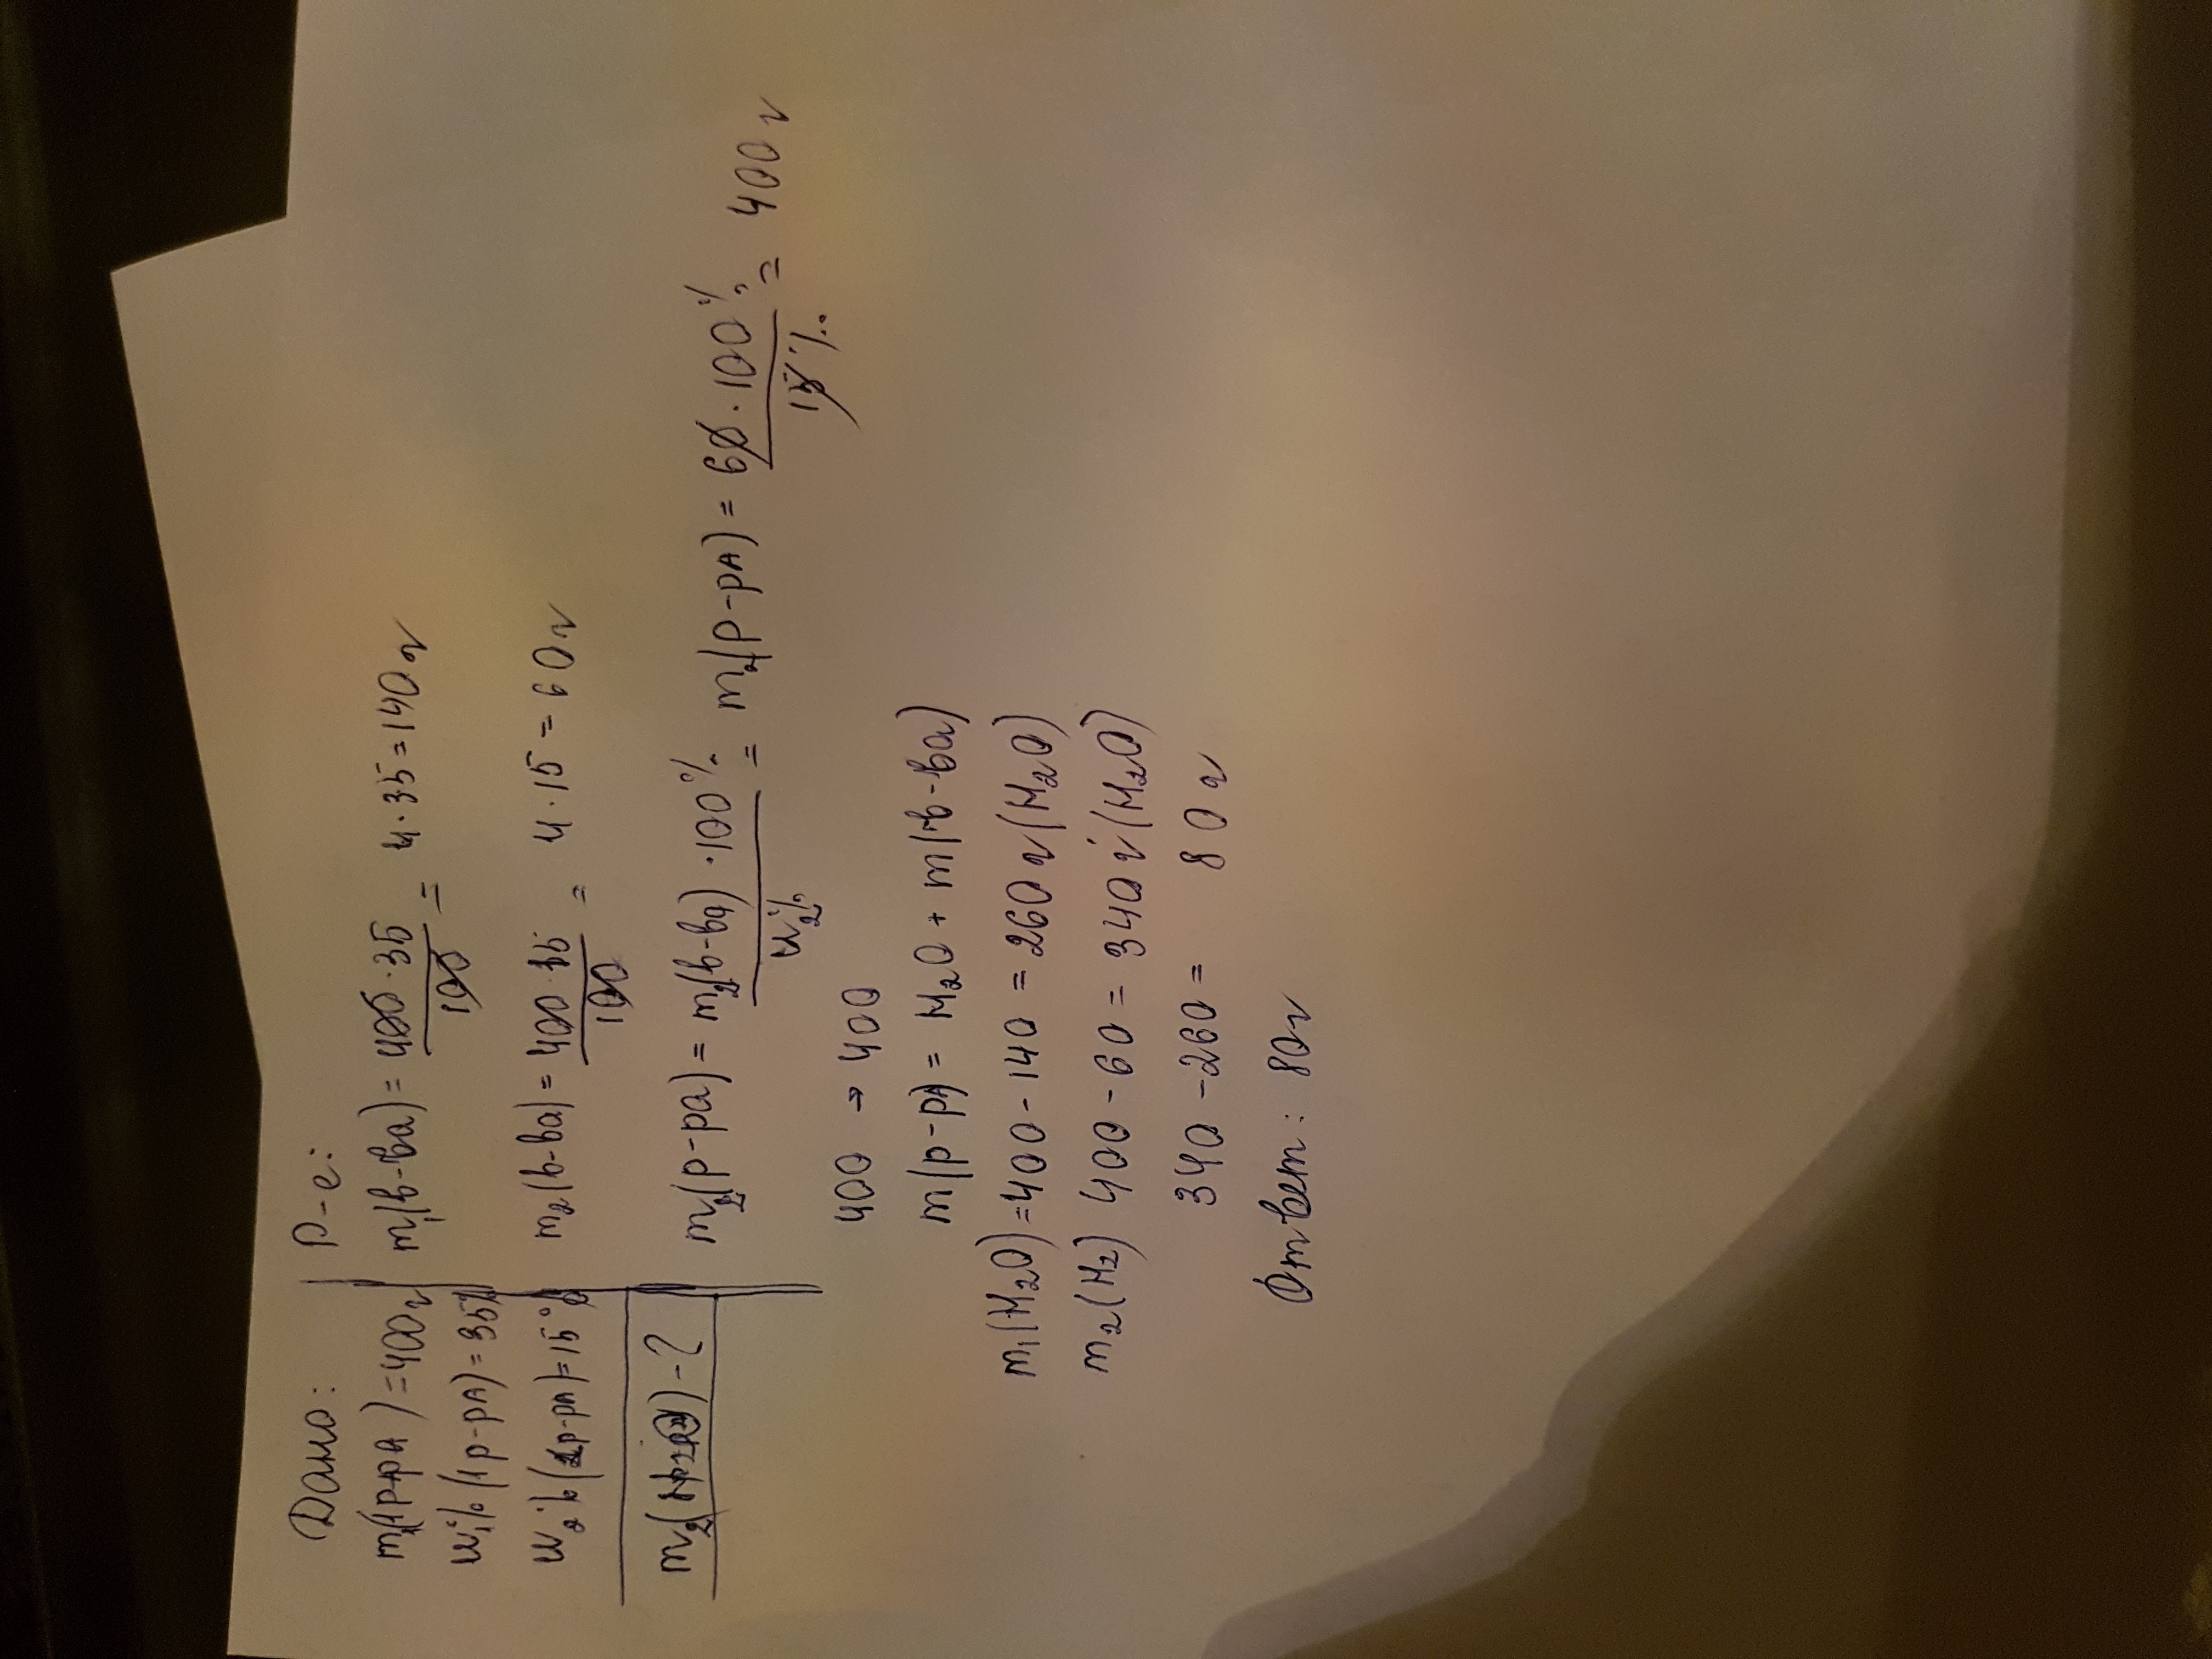 Дано:
m₁(1р-рА) = 400г
w₁%(1р-рА) = 35%
w₂%(2р-рА) = 15%
m₂(H₂O) - ?
Р-е:
m₁(в-ва) = 400·35/100 = 4·35 = 140г
m₂(в-ва) = 400·15/100 = 4·15 = 60г
m₂(р-ра) = m₂(в-ва)·100%/w₂% = m₂(р-рА) = 60·100%/15% = 400г
400 → 400
m(р-рА) = H₂O + m(в-ва)
m₁(H₂O) = 400 - 140 = 260г(H₂O)
m₂(H₂) 400 - 60 = 340г(H₂O)
340 - 260 = 80г
Ответ: 80г